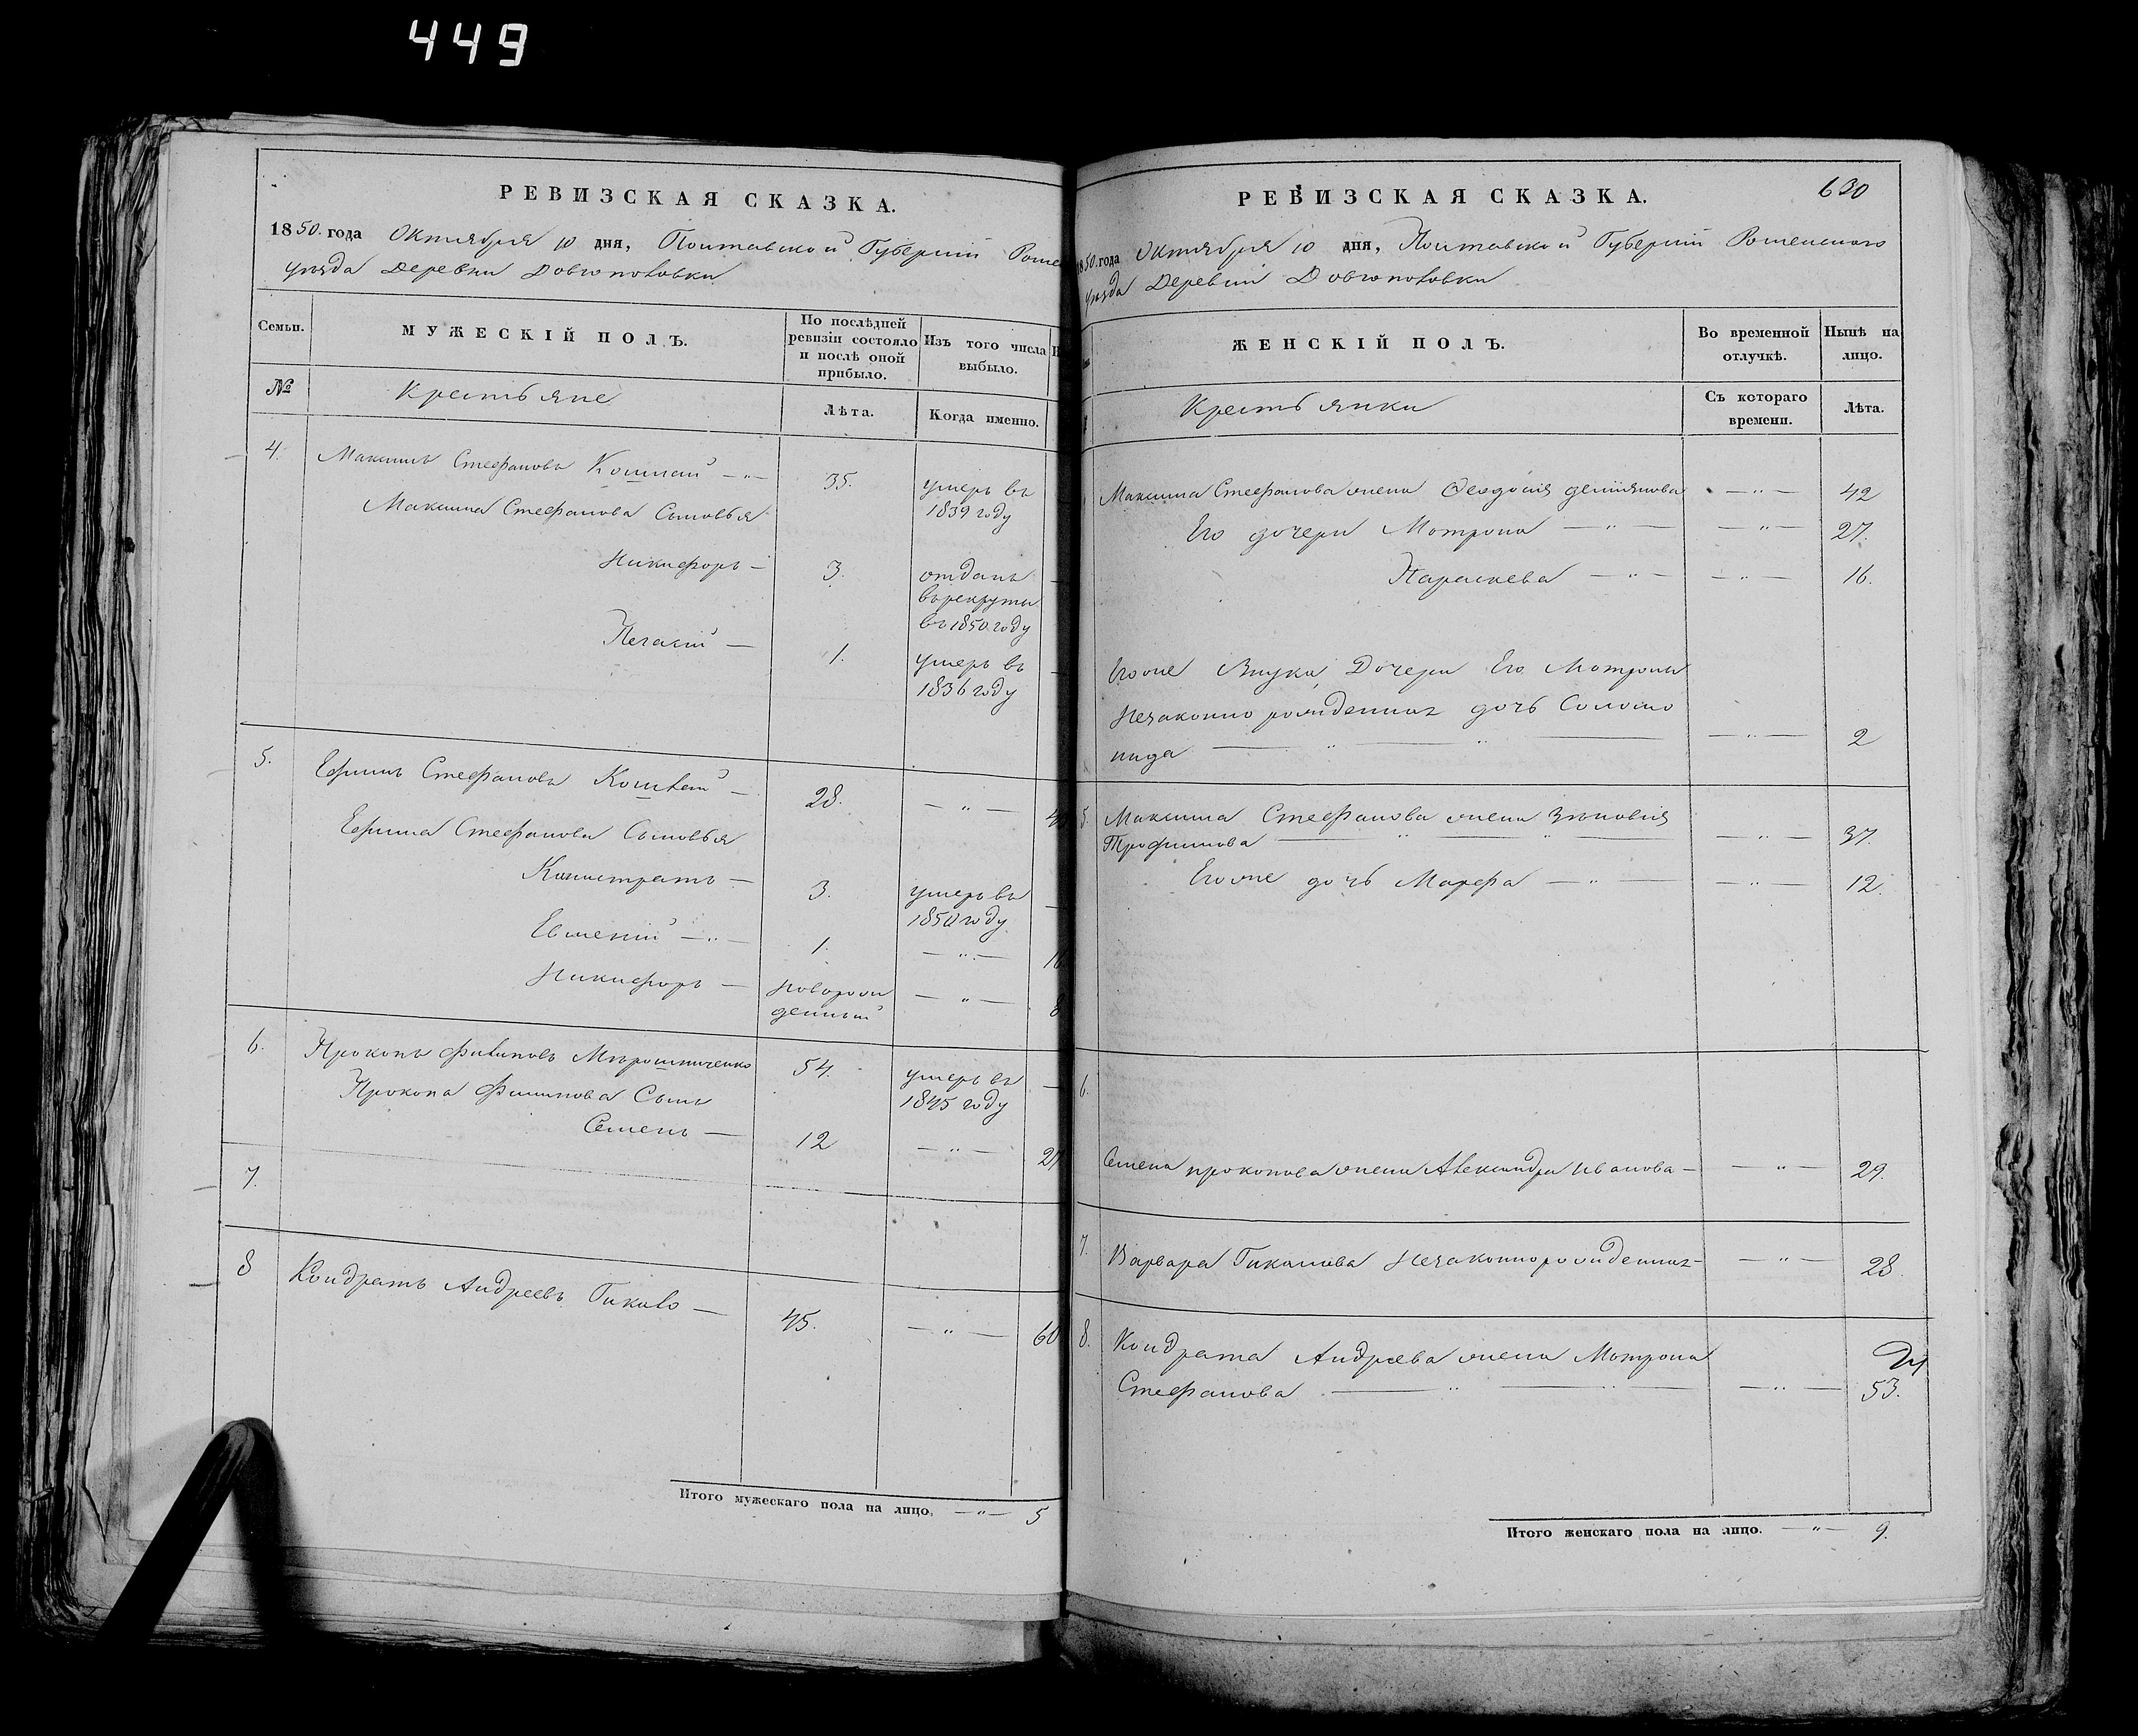 449
РЕВИЗСКАЯ СКАЗКА.
1850. года Октября 10 дня, Полтавской Губернии Роме
уезда Деревни Довгополовки
Семьи.
МУЖЕСКІЙ ПОЛЪ.
По послѣдней ревизіи состояло и послѣ оной прибыло.
Изъ того числа выбыло.
№
Крестьяне
Лѣта.
Когда именно.
4. Максимъ Стефановъ 35. умеръ въ
1839 году
Максима Стефанова Сыновья
Никифоръ 3. отданъ
въ рекруты
въ 1850 году
1. умеръ въ
1836 году
5. Ефимъ Стефановъ 28.
Ефима Стефанова Сыновья
3. умеръ въ
1850 году
1.
Никифоръ новорож
денный 8
6. Прокопъ Филиповъ Мирошниченко 54. умеръ въ
1845 году
Прокопа Филипова Сынъ
Семенъ 12
7.
8 Кондратъ Андреевъ Гикало 45. 60
Итого мужескаго пола на лицо. 5
РЕВИЗСКАЯ СКАЗКА.
630
1850. года Октября 10 дня, Полтавской Губернии Роменского
уезда Деревни Довгополовки
ЖЕНСКІЙ ПОЛЪ.
Во временной отлучкѣ.
Нынѣ на лицо.
Крестьянки
Съ котораго времени.
Лѣта.
Максима Стефанова жена Феодосия 42
Его дочери Мотрона 27.
Параскева 16.
Егоже Внука, Дочери Его Мотроны
Незаконно рожденная дочь Соломо
нида 2
5. Максима Стефанова жена Зѣновия
Трофимова 37.
Егоже дочь Марфа 12.
6.
Семена прокопова жена Александра иванова 29.
7. Варвара Гикалова Незаконнорожденная 28.
8. Кондрата Андреева жена Мотрона
Стефанова 53.
Итого женскаго пола на лицо. 9.